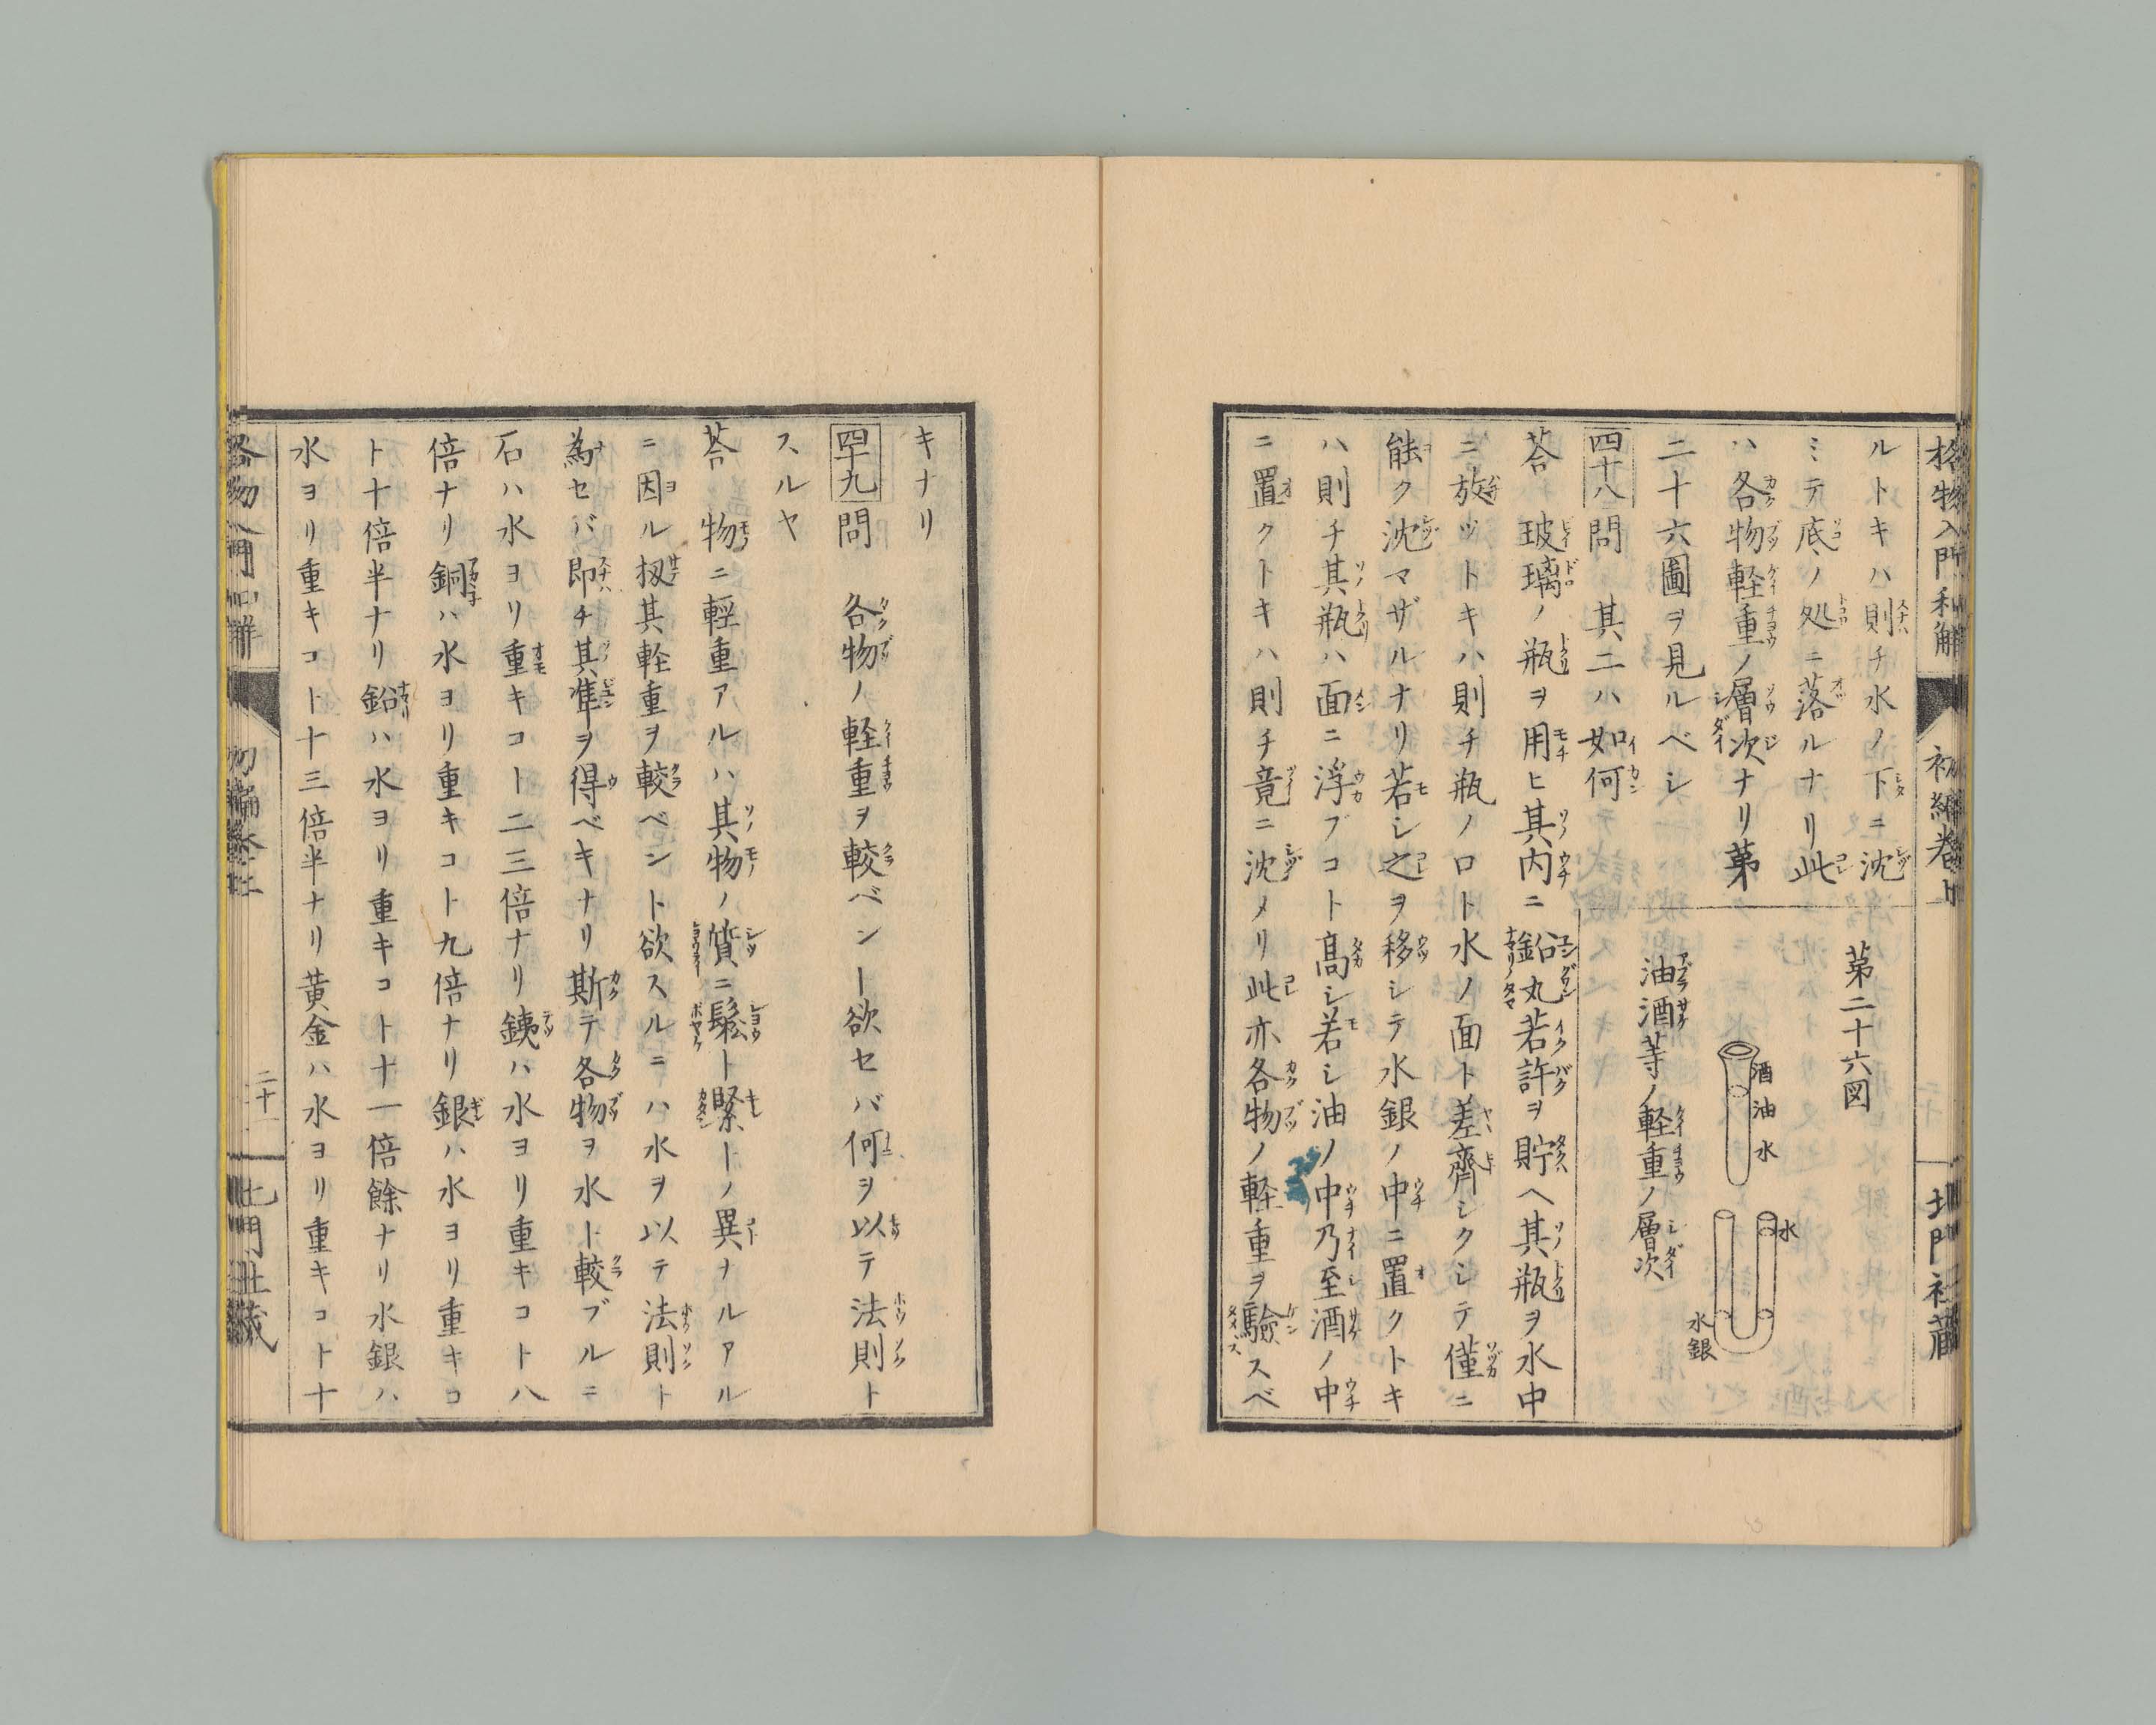 格物入門和解
初編巻上
北門社蔵
ルトキハ則チ水ノ下ニ沈
ミテ底ノ処ニ落ルナリ此
ハ各物軽重ノ層次ナリ第
二十六圖ヲ見ルベシ
第二十六図
酒
油
水
水
水銀
油酒等ノ軽重ノ層次
四十八 問 其二ハ如何
荅 玻璃ノ瓶ヲ用ヒ其内ニ鉛丸若許ヲ貯ヘ其瓶ヲ水中
ニ放ツトキハ則チ瓶ノ口ト水ノ面ト差齊シクシテ僅ニ
能ク沈マザルナリ若シ之ヲ移シテ水銀ノ中ニ置クトキ
ハ則チ其瓶ハ面ニ浮ブコト髙シ若シ油ノ中乃至酒ノ中
ニ置クトキハ則チ竟ニ沈メリ此亦各物ノ軽重ヲ驗スベ
キナリ
四十九 問 各物ノ軽重ヲ較ベント欲セバ何ヲ以テ法則ト
スルヤ
荅 物ニ輕重アルハ其物ノ質ニ鬆ト緊トノ異ナルアル
ニ因ル扨其軽重ヲ較ベント欲スルニハ水ヲ以テ法則ト
為セバ即チ其準ヲ得ベキナリ斯テ各物ヲ水ト較ブルニ
石ハ水ヨリ重キコト二三倍ナリ銕ハ水ヨリ重キコト八
倍ナリ銅ハ水ヨリ重キコト九倍ナリ銀ハ水ヨリ重キコ
ト十倍半ナリ鉛ハ水ヨリ重キコト十一倍餘ナリ水銀ハ
水ヨリ重キコト十三倍半ナリ黄金ハ水ヨリ重キコト十
格物入門和解
初編巻上
二十一
北門社蔵